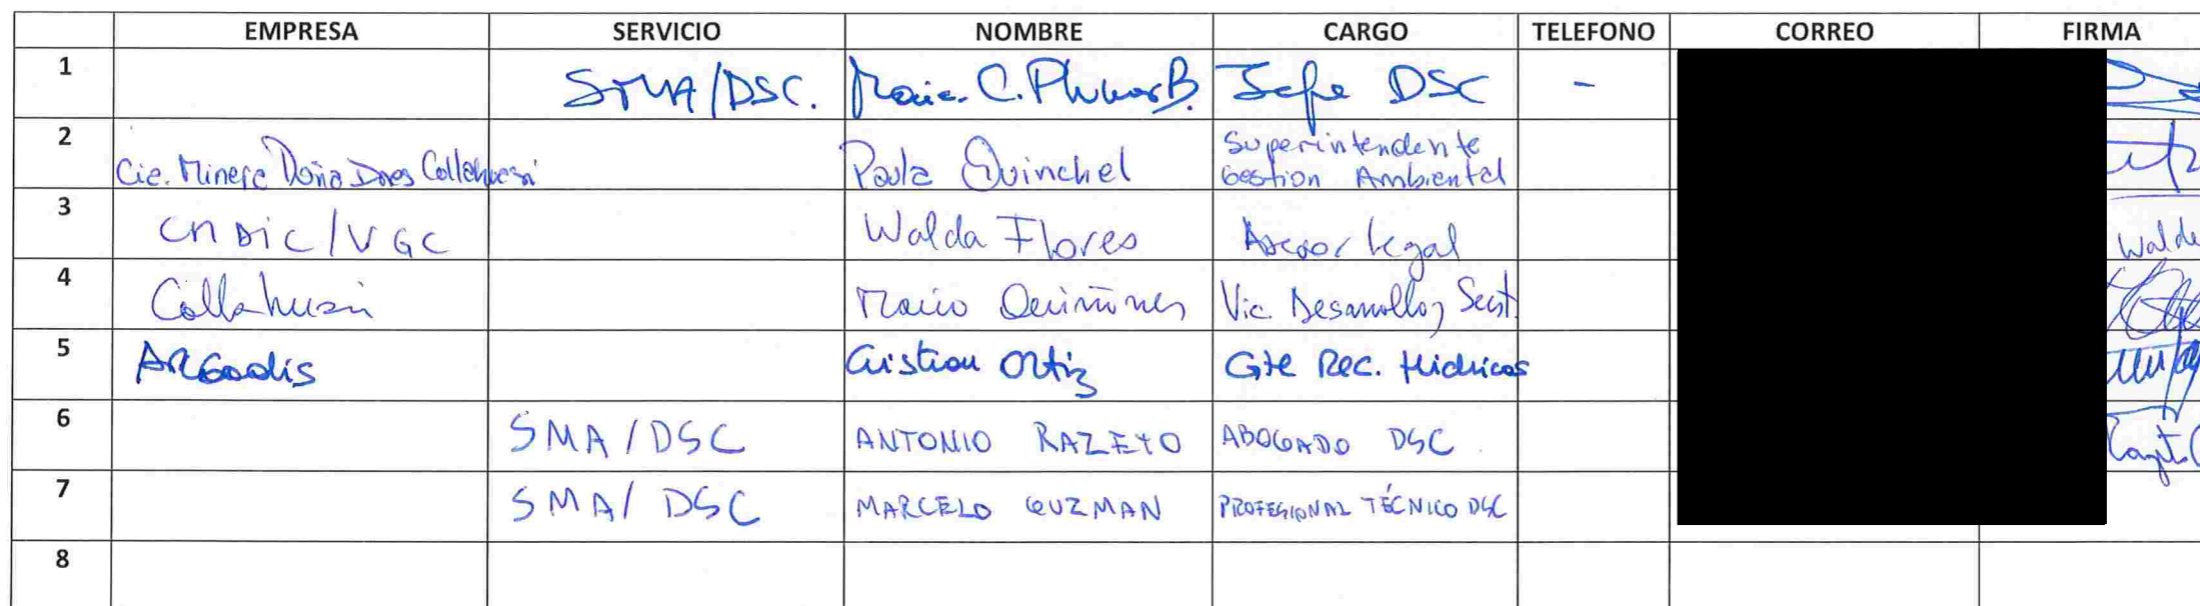 EMPRESA SERVICIO NOMBRE CARGO TELEFONO CORREO FIRMA
1 SMA/DSC. C. B. Jefe DSC -
2 Cia. Minera Doña Ines Collahuasi Paula Quinchel Superintendente
Gestion Ambiental
3 CMDIC/VGC Walda Flores Asesor legal
4 Collahuasi Mario Quiñones Vic. Desarrollo y Sust.
5 Arcadis Cristian Ortiz Gte Rec. Hidricos
6 SMA/DSC ANTONIO RAZETO ABOGADO DSC
7 SMA/DSC MARCELO GUZMAN PROFESIONAL TÉCNICO DSC
8